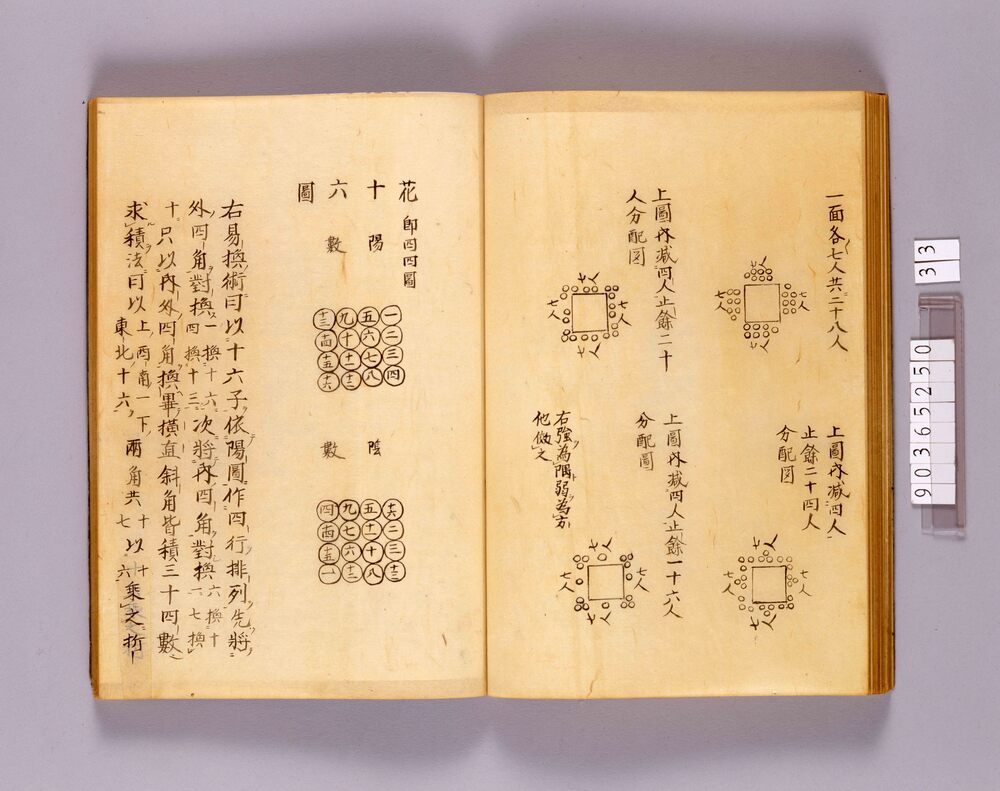 一面各七人共二十八人
七人
七人
七人
七人
上圖內減四人止餘二十
人分配図
七人
七人
七人
七人
上圖內減四人
止餘二十四人
分配図
七人
七人
七人
七人
上圖內減四人止餘一十六人
分配圖
七人
七人
七人
七人
右強為隅弱為方
他倣之
花十六圖
即四四圖
陽數
一 五 九 十三
二 六 十 十四
三 七 十一 十五
四 八 十二 十六
陰數
十六 五 九 四
二 十一 七 十四
三 十 六 十五
十三 八 十二 一
右易換術曰以十六子依陽圖作四行排列先將
外四角對換一換十六四換十三次將內四角對換六換十一七換
十只以內外四角換畢橫直斜角皆積三十四數
求積法曰以上西南一下東北十六兩角共十七以十六乘之折
33
90365250